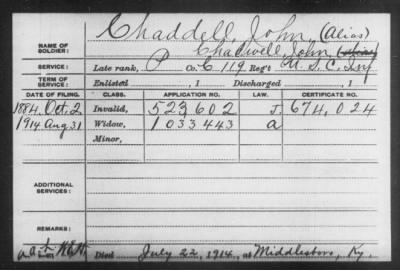 Chaddell, John, (Alias)
NAME OF SOLDIER: Chadwell, John
SERVICE: Late rank, P Co. C 119 Reg't U. S. C. Inf
TERM OF SERVICE: Enlisted , 1 Discharged , 1
DATE OF FILING. CLASS. APPLICATION NO. LAW. CERTIFICATE NO.
1884, Oct. 2 Invalid, 523602 J. 674,024
1914 Aug 31 Widow, 1033443 a
Minor,
ADDITIONAL SERVICES:
REMARKS:
Died July 22, 1914, at Middlesboro, Ky.